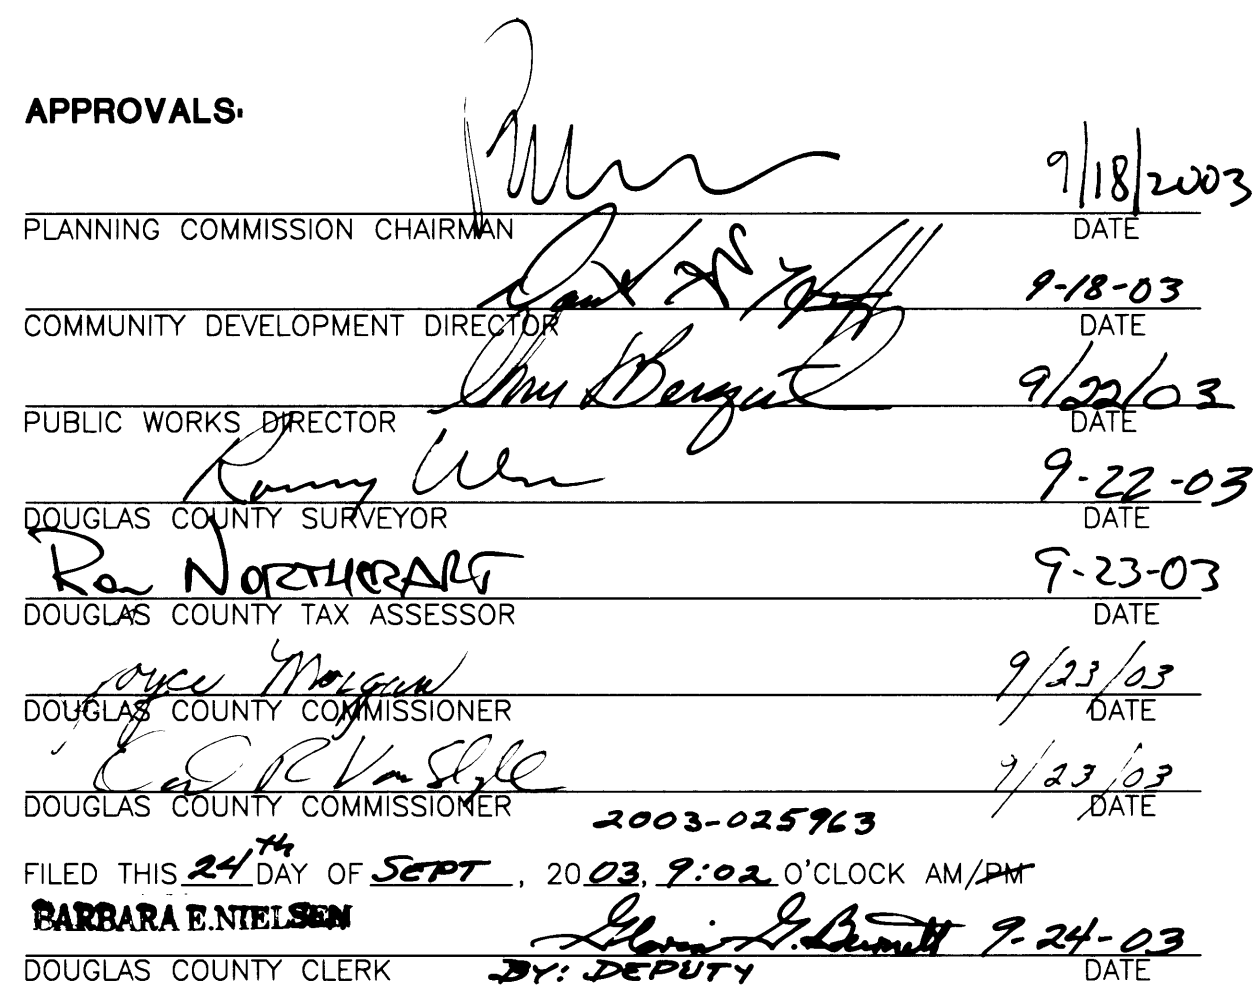 APPROVALS:
9/18/2003
PLANNING COMMISSION CHAIRMAN DATE
9-18-03
COMMUNITY DEVELOPMENT DIRECTOR DATE
9/22/03
PUBLIC WORKS DIRECTOR DATE
9-22-03
DOUGLAS COUNTY SURVEYOR DATE
Ron NORTHCRAFT 9-23-03
DOUGLAS COUNTY TAX ASSESSOR DATE
Joyce Morgan 9/23/03
DOUGLAS COUNTY COMMISSIONER DATE
R Van Slyke 9/23/03
DOUGLAS COUNTY COMMISSIONER DATE
2003-025963
FILED THIS 24th DAY OF SEPT, 2003, 9:02 O'CLOCK AM/PM
BARBARA E. NIELSEN Gloria G. Bennett 9-24-03
DOUGLAS COUNTY CLERK BY: DEPUTY DATE